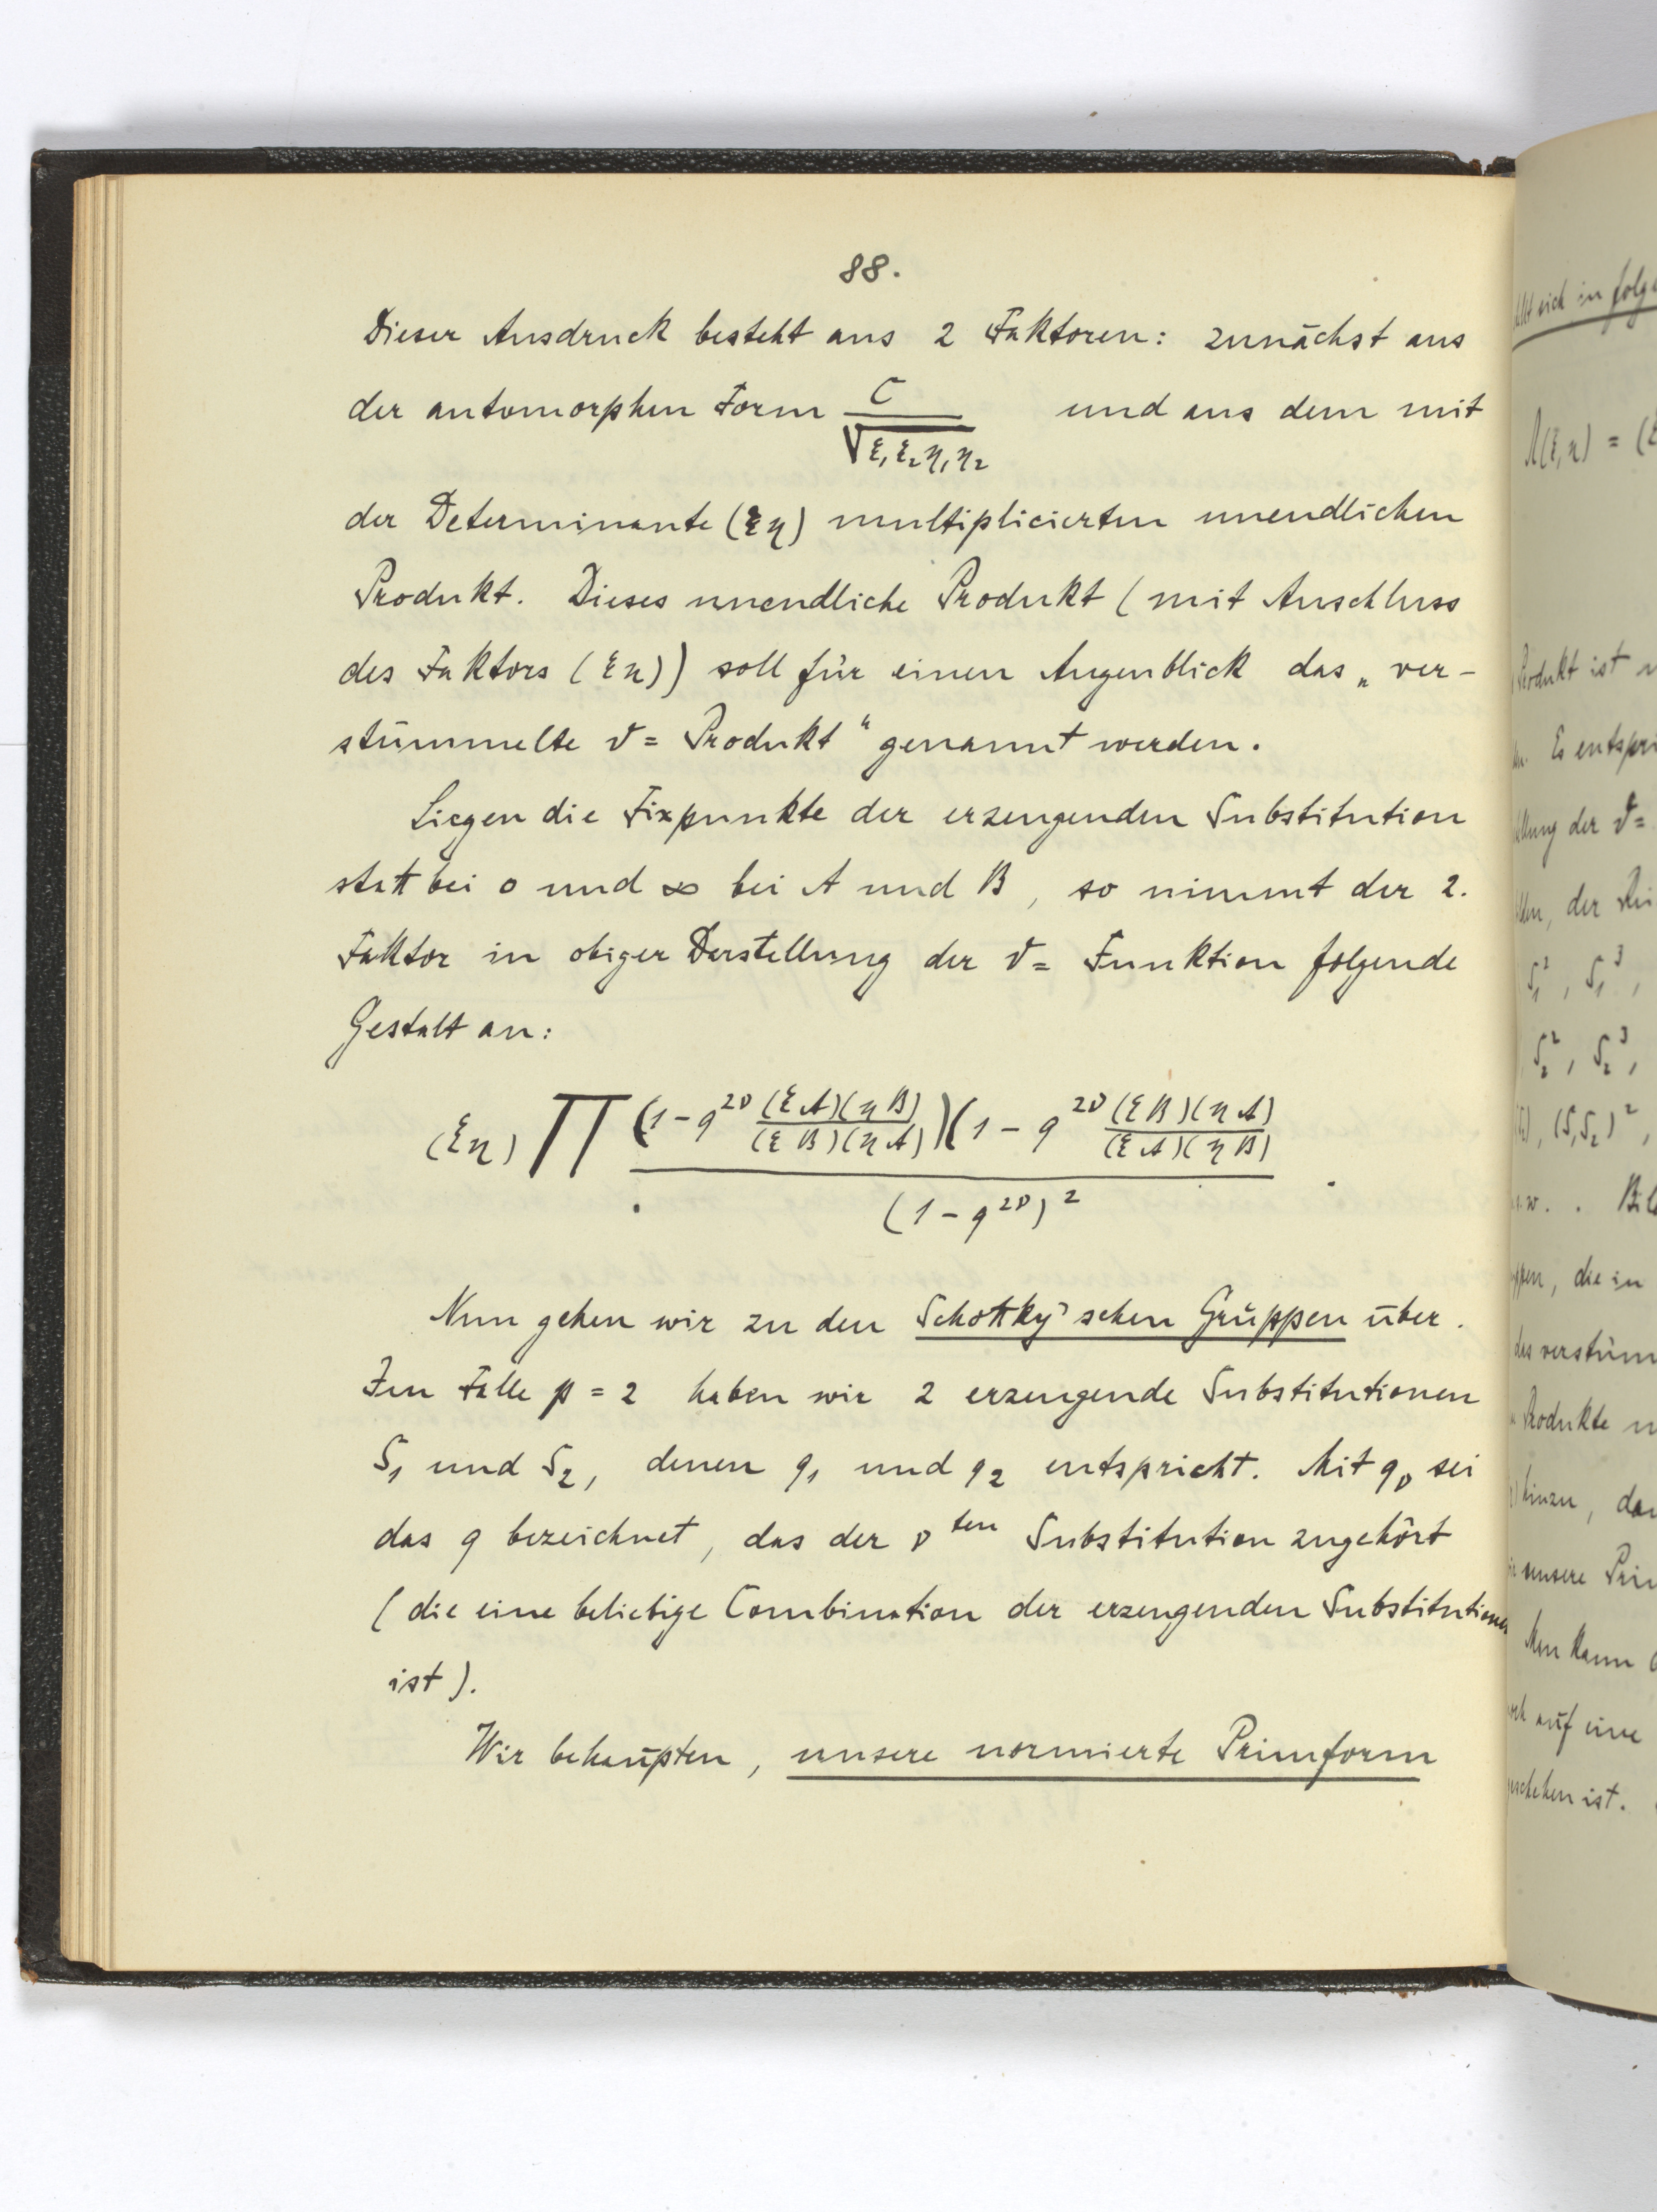 88.
Dieser Ausdruck besteht aus 2 Faktoren: zunächst aus
der automorphen Form C / √(ξ₁ξ₂η₁η₂) und aus dem mit
der Determinante (ξη) multiplicierten unendlichen
Produkt. Dieses unendliche Produkt (mit Anschluss
des Faktors (ξη)) soll für einen Augenblick das „ver-
stümmelte ϑ= Produkt“ genannt werden.
Liegen die Fixpunkte der erzeugenden Substitution
statt bei 0 und ∞ bei A und B, so nimmt der 2.
Faktor in obiger Darstellung der ϑ= Funktion folgende
Gestalt an:
(ξη) ∏ (1 - q^{2ν} (ξA)(ηB)/(ξB)(ηA)) (1 - q^{2ν} (ξB)(ηA)/(ξA)(ηB)) / (1 - q^{2ν})² .
Nun gehen wir zu den Schottky'schen Gruppen über.
Im Falle p = 2 haben wir 2 erzeugende Substitutionen
S₁ und S₂, denen q₁ und q₂ entspricht. Mit q_ν sei
das q bezeichnet, das der ν^{ten} Substitution zugehört
(die eine beliebige Combination der erzeugenden Substitutionen
ist).
Wir behaupten, unsere normierte Primform
sich in folge
Λ(ξ,η) = (ξ
Produkt ist
Es entspri
der ϑ=
der
S₁², S₁³,
S₂², S₂³,
(S₁S₂)²,
die in
das verstüm
Produkte
hinzu,
unsere Prim
Man kann
auf eine
ist.